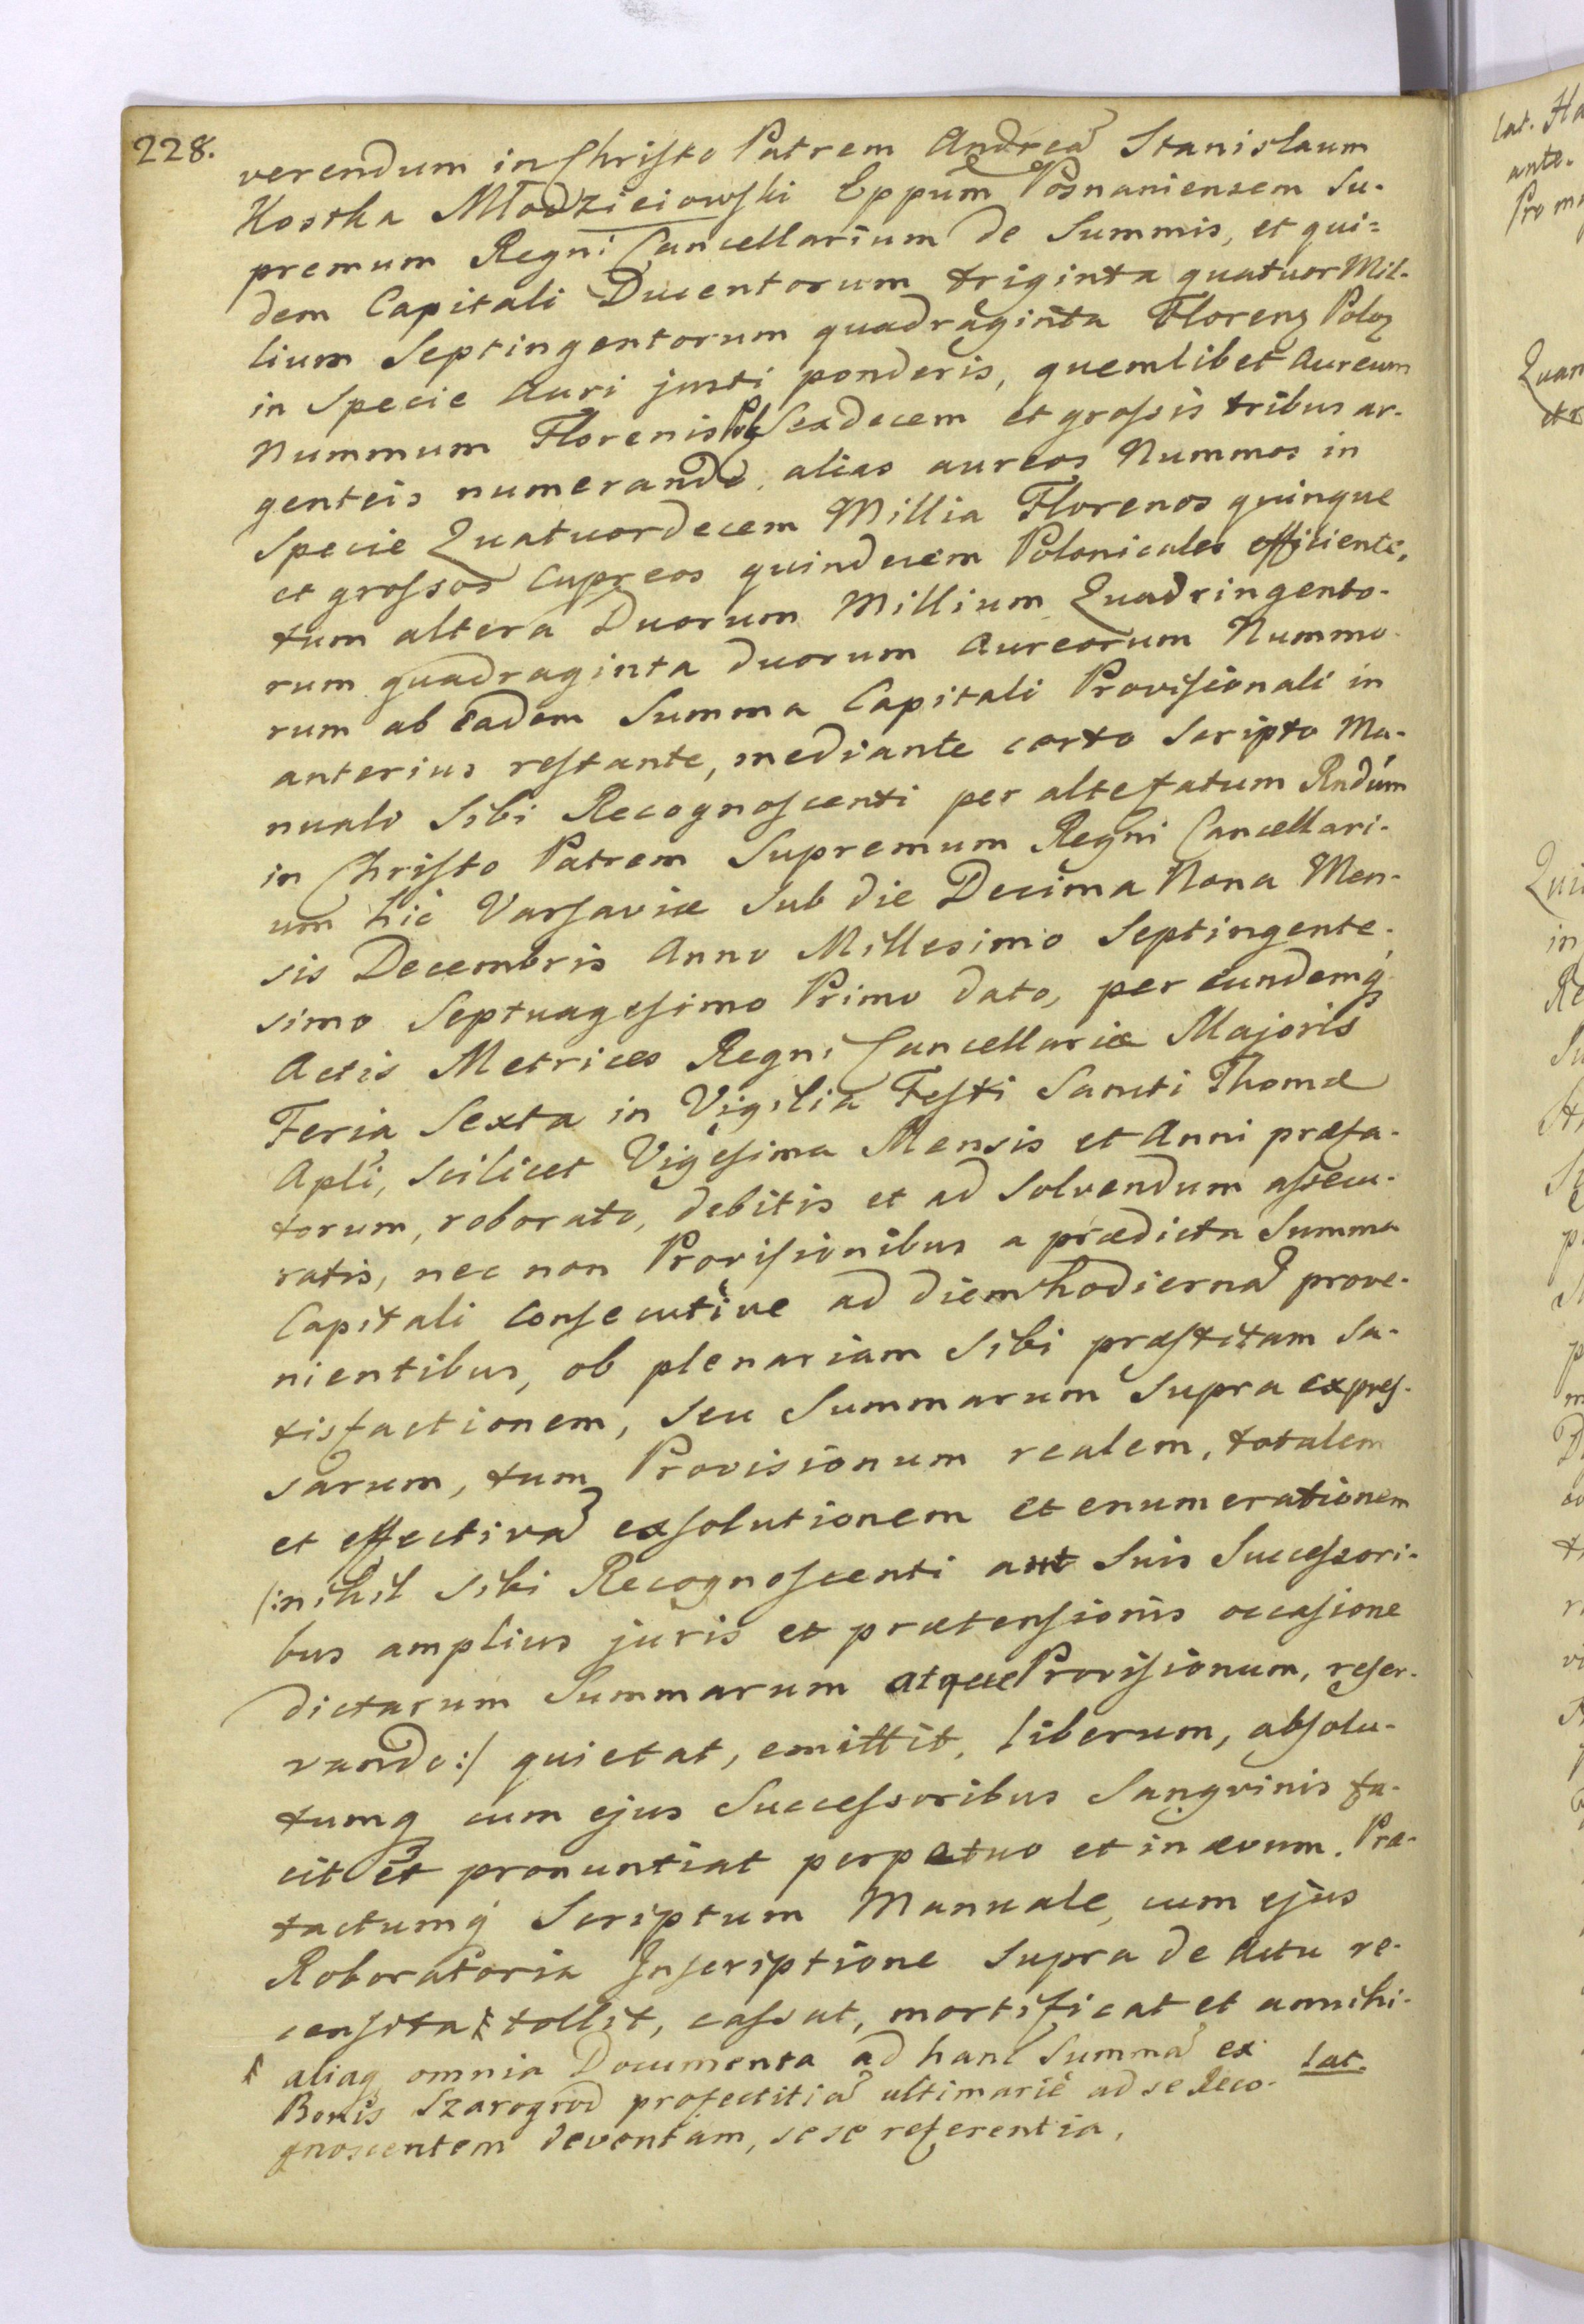 228.
verendum in Christo Patrem Andreā Stanislaum
Kostka Młodzieiowski Eppūm Posnaniensem Su-
premum Regni Cancellarium de Summis, et qui=
dem Capitali Ducentorum triginta quatuor Mil-
lium Septingentorum quadraginta Florenz Poloz
in Specie Auri justi ponderis, quemlibet Aureum
Nummum Florenis Polz Sexdecem et grossis tribus ar-
genteis numerando, alias aureos Nummos in
Specie Quatuordecem Millia Florenos quinque
et grossos Cupreos quindecem Polonicales efficiente,
tum altera Duorum Millium Quadringento-
rum quadraginta duorum Aureorum Nummo-
rum ab eadem Summa Capitali Provisionali in
anterius restante, mediante certo Scripto Ma-
nuali Sibi Recognoscenti per altefatum Rndūm
in Christo Patrem Supremum Regni Cancellari-
um hic Varsaviæ Sub die Decima Nona Men-
sis Decembris Anno Millesimo Septingente-
simo Septuagesimo Primo dato, per eundemq́
Actis Metrices Regni Cancellariæ Majoris
Feria Sexta in Vigilia Festi Sancti Thomæ
Apli, scilicet Vigesima Mensis et Anni præfa-
torum, roborato, debitis et ad Solvendum assecu-
ratis, nec non Provisionibus a prædicta Summa
Capitali Consecutive ad diem hodiernā prove-
nientibus, ob plenariam Sibi præstitam Sa-
tisfactionem, seu Summarum Supra expres-
sarum, tum Provisionum realem, totalem
et effectivā exsolutionem et enumerationem
/:nihil Sibi Recognoscenti aut Suis Successori-
bus amplius juris et prætensionis occasione
dictarum Summarum atque Provisionum, reser-
vando:/ quietat, emittit, liberum, absolu-
tumq cum ejus Successoribus Sangvinis fa-
cit et pronuntiat perpetuo et in ævum. Præ-
tactumq́ Scriptum Manuale, cum ejus
Roboratoria Inscriptione Supra de Actu re-
censita tollit, cassat, mortificat et annihi-
lat.
aliaq omnia Documenta ad hanc Summā ex
Bonis Szarogrod profectitiā ultimarie ad se Reco-
gnoscentem devoutam, sese referentia,